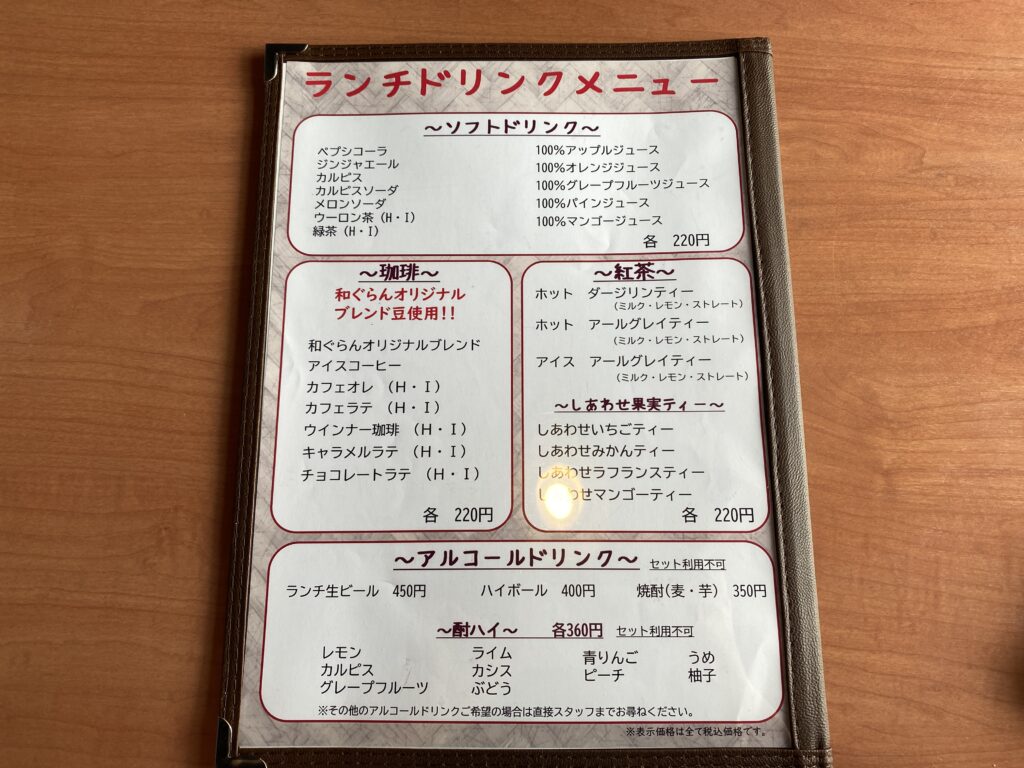 ランチドリンクメニュー
～ソフトドリンク～
ペプシコーラ
ジンジャエール
カルピス
カルピスソーダ
メロンソーダ
ウーロン茶（H・I）
緑茶（H・I）
100％アップルジュース
100％オレンジジュース
100％グレープフルーツジュース
100％パインジュース
100％マンゴージュース
各　220円
～珈琲～
和ぐらんオリジナル
ブレンド豆使用!!
和ぐらんオリジナルブレンド
アイスコーヒー
カフェオレ　（H・I）
カフェラテ　（H・I）
ウインナー珈琲　（H・I）
キャラメルラテ　（H・I）
チョコレートラテ　（H・I）
各　220円
～紅茶～
ホット　ダージリンティー
（ミルク・レモン・ストレート）
ホット　アールグレイティー
（ミルク・レモン・ストレート）
アイス　アールグレイティー
（ミルク・レモン・ストレート）
～しあわせ果実ティー～
しあわせいちごティー
しあわせみかんティー
しあわせラフランスティー
しあわせマンゴーティー
各　220円
～アルコールドリンク～　セット利用不可
ランチ生ビール　450円　ハイボール　400円　焼酎(麦・芋)　350円
～酎ハイ～　各360円　セット利用不可
レモン　ライム　青りんご　うめ
カルピス　カシス　ピーチ　柚子
グレープフルーツ　ぶどう
※その他のアルコールドリンクご希望の場合は直接スタッフまでお尋ねください。
※表示価格は全て税込価格です。